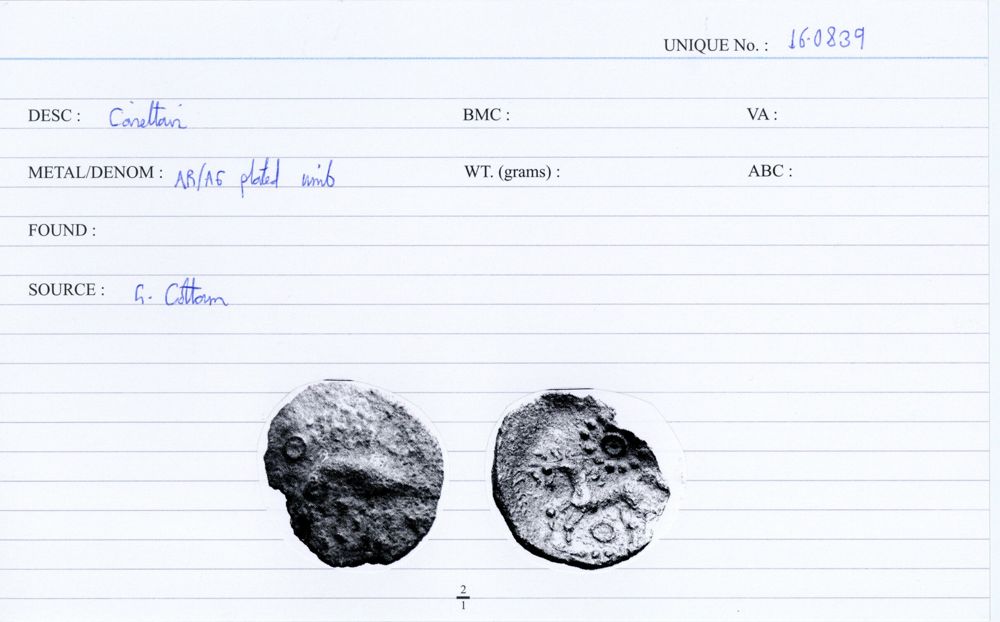 UNIQUE No. : 16.0839
DESC : Corieltavi BMC : VA :
METAL/DENOM : AR/AE plated unit WT. (grams) : ABC :
FOUND :
SOURCE : G. Cottam
2
1